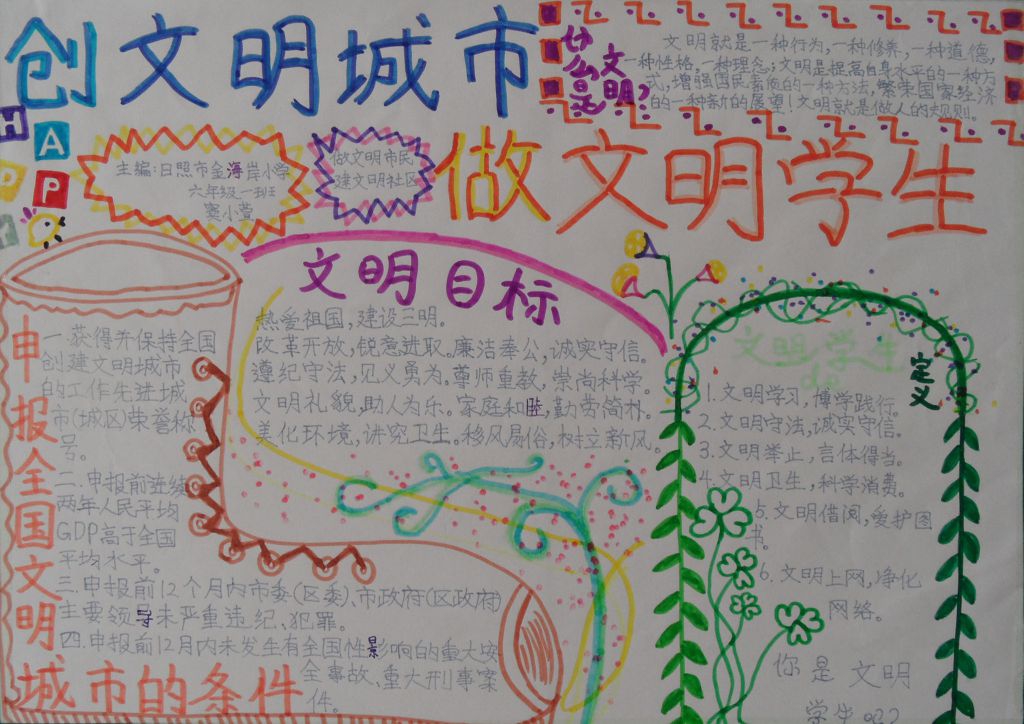 创文明城市
什么是文明?
文明就是一种行为,一种修养,一种道德,
一种性格,一种理念;文明是提高自身水平的一种方
式,增强国民素质的一种方法,繁荣国家经济
的一种新的展望!文明就是做人的规则。
H
A
P
P
主编:日照市金海岸小学
六年级一班
窦小萱
做文明市民
建文明社区
做文明学生
申报全国文明
城市的条件
一.获得并保持全国
创建文明城市
的工作先进城
市(城区)荣誉称
号。
二.申报前连续
两年人民平均
GDP高于全国
平均水平。
三.申报前12个月内市委(区委)、市政府(区政府)
主要领导未严重违纪、犯罪。
四.申报前12月内未发生有全国性影响的重大安
全事故、重大刑事案
件。
文明目标
热爱祖国,建设三明。
改革开放,锐意进取。廉洁奉公,诚实守信。
遵纪守法,见义勇为。尊师重教,崇尚科学。
文明礼貌,助人为乐。家庭和睦,勤劳简朴。
美化环境,讲究卫生。移风易俗,树立新风。
文明学生
de
定义
1.文明学习,博学践行。
2.文明守法,诚实守信。
3.文明举止,言体得当。
4.文明卫生,科学消费。
5.文明借阅,爱护图
书。
6.文明上网,净化
网络。
你是文明
学生